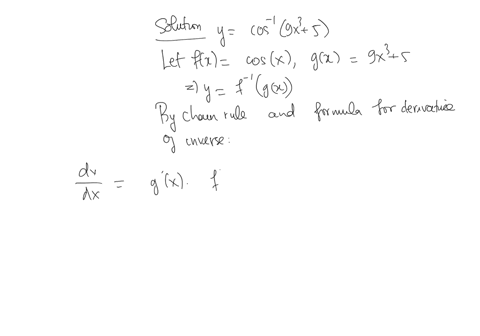 Solution y = cos⁻¹(9x³+5)
Let f(x) = cos(x), g(x) = 9x³+5
=> y = f⁻¹(g(x))
By chain rule and formula for derivative
of inverse:
dy/dx = g'(x). f